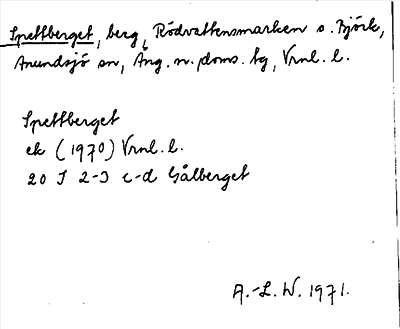 Spettberget, berg, Rödvattensmarken o. Björk,
Anundsjö sn, Ång. n. doms. tg, Vrnl. l.
Spettberget
ek (1970) Vrnl. l.
20 I 2-3 c-d Gålberget
A.-L. W. 1971.